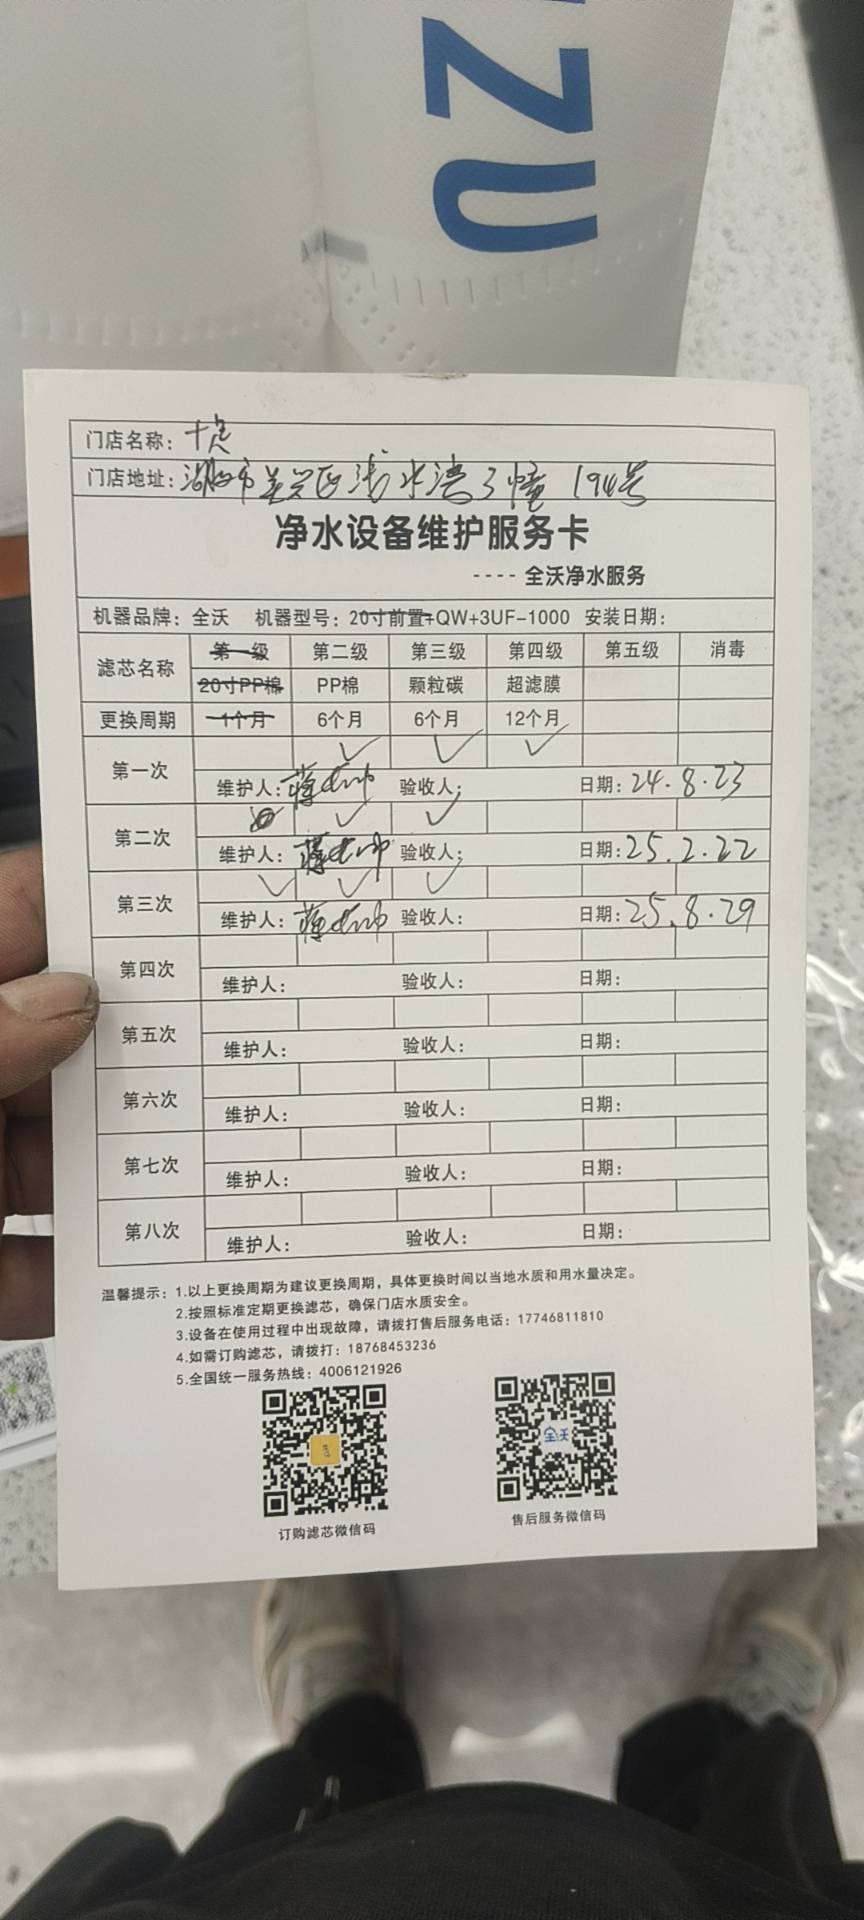 ZU
门店名称：
门店地址：湖州市吴兴区浅水湾3幢 194号
净水设备维护服务卡
---- 全沃净水服务
机器品牌：全沃 机器型号：20寸前置+QW+3UF-1000 安装日期：
滤芯名称 第一级 第二级 第三级 第四级 第五级 消毒
20寸PP棉 PP棉 颗粒碳 超滤膜
更换周期 1个月 6个月 6个月 12个月
第一次 ✓ ✓ ✓
维护人： 验收人： 日期：24.8.23
第二次 ✓ ✓
维护人： 验收人： 日期：25.2.22
第三次 ✓ ✓ ✓
维护人： 验收人： 日期：25.8.29
第四次
维护人： 验收人： 日期：
第五次
维护人： 验收人： 日期：
第六次
维护人： 验收人： 日期：
第七次
维护人： 验收人： 日期：
第八次
维护人： 验收人： 日期：
温馨提示：1.以上更换周期为建议更换周期，具体更换时间以当地水质和用水量决定。
2.按照标准定期更换滤芯，确保门店水质安全。
3.设备在使用过程中出现故障，请拨打售后服务电话：17746811810
4.如需订购滤芯，请拨打：18768453236
5.全国统一服务热线：4006121926
全沃
订购滤芯微信码 售后服务微信码